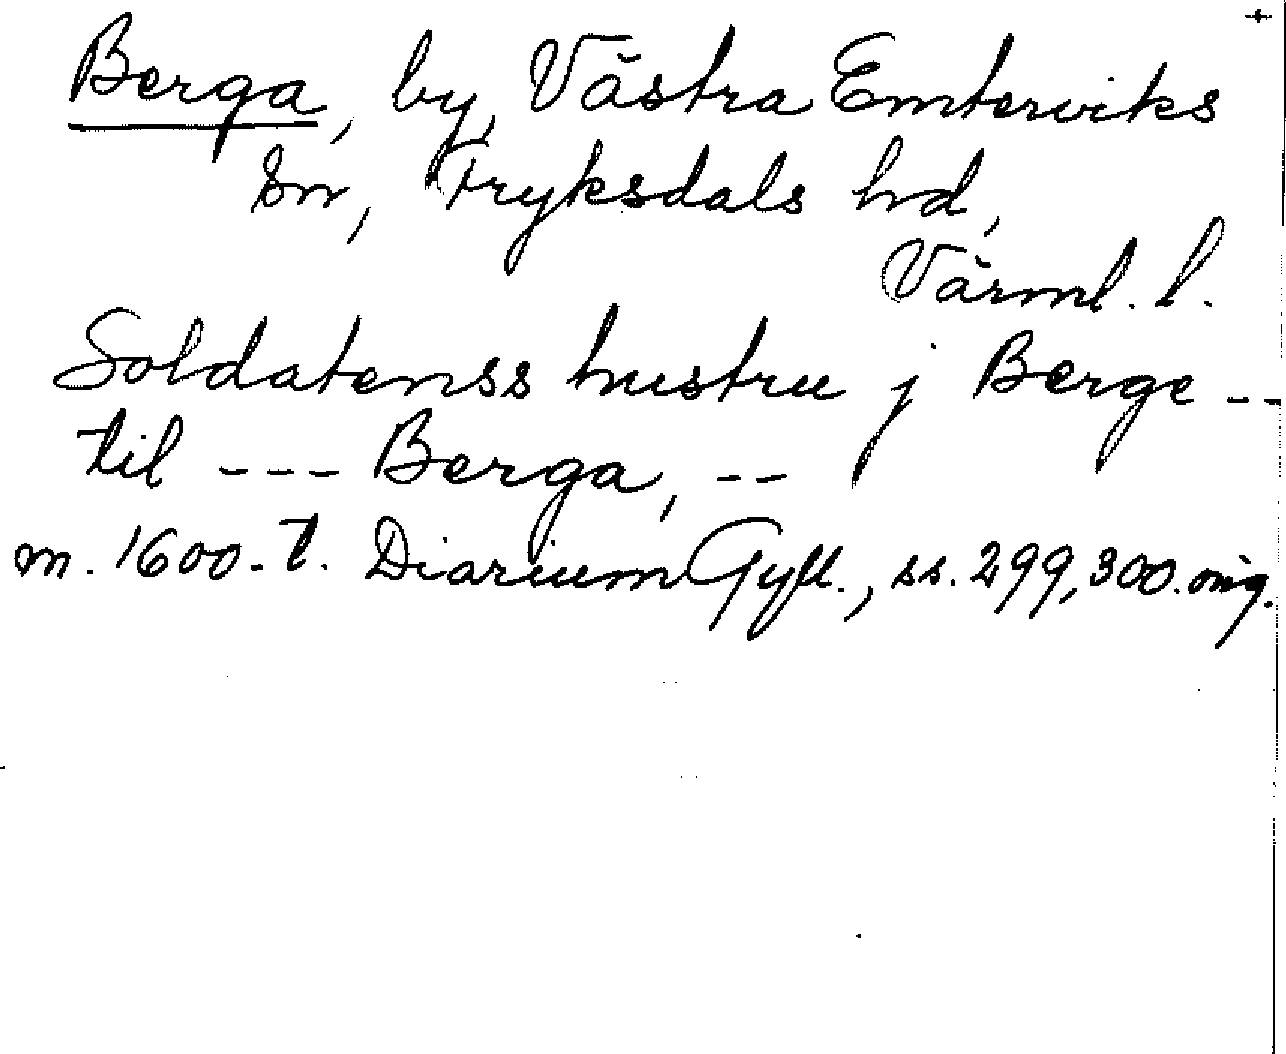 +
Berga, by, Västra Emterviks
sn, Fryksdals hd,
Värml. l.
Soldatenss hustru j Berge --
til --- Berga, --
m. 1600-t. Diarium Gyll., ss. 299, 300. orig.